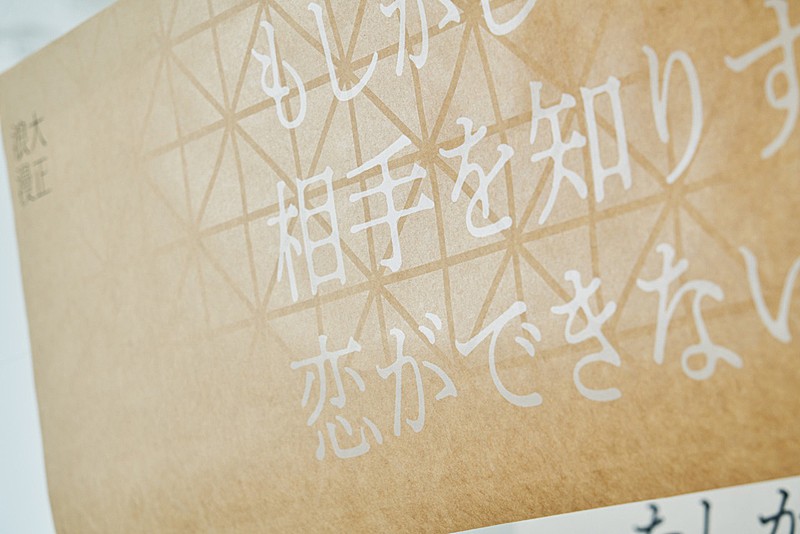 大正
浪漫
もしかし
相手を知りす
恋ができない
もしか